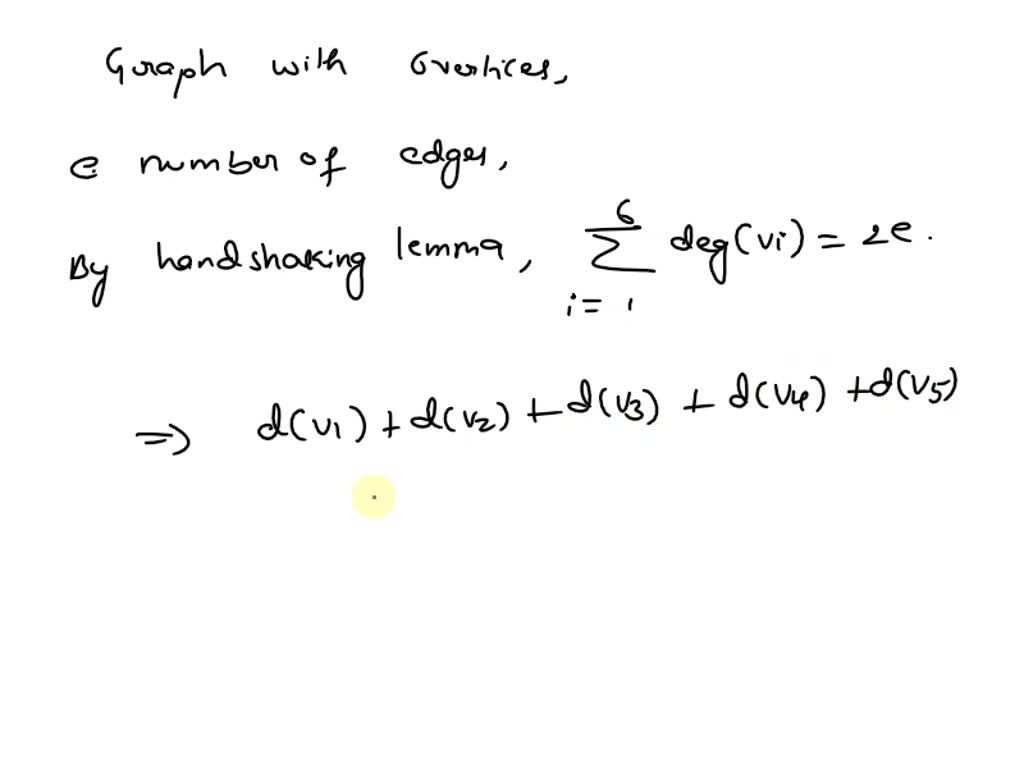 Graph with 6 vertices,
e number of edges,
By handshaking lemma, 6∑i=1 deg(vi) = 2e.
=> d(v1) + d(v2) + d(v3) + d(v4) + d(v5)